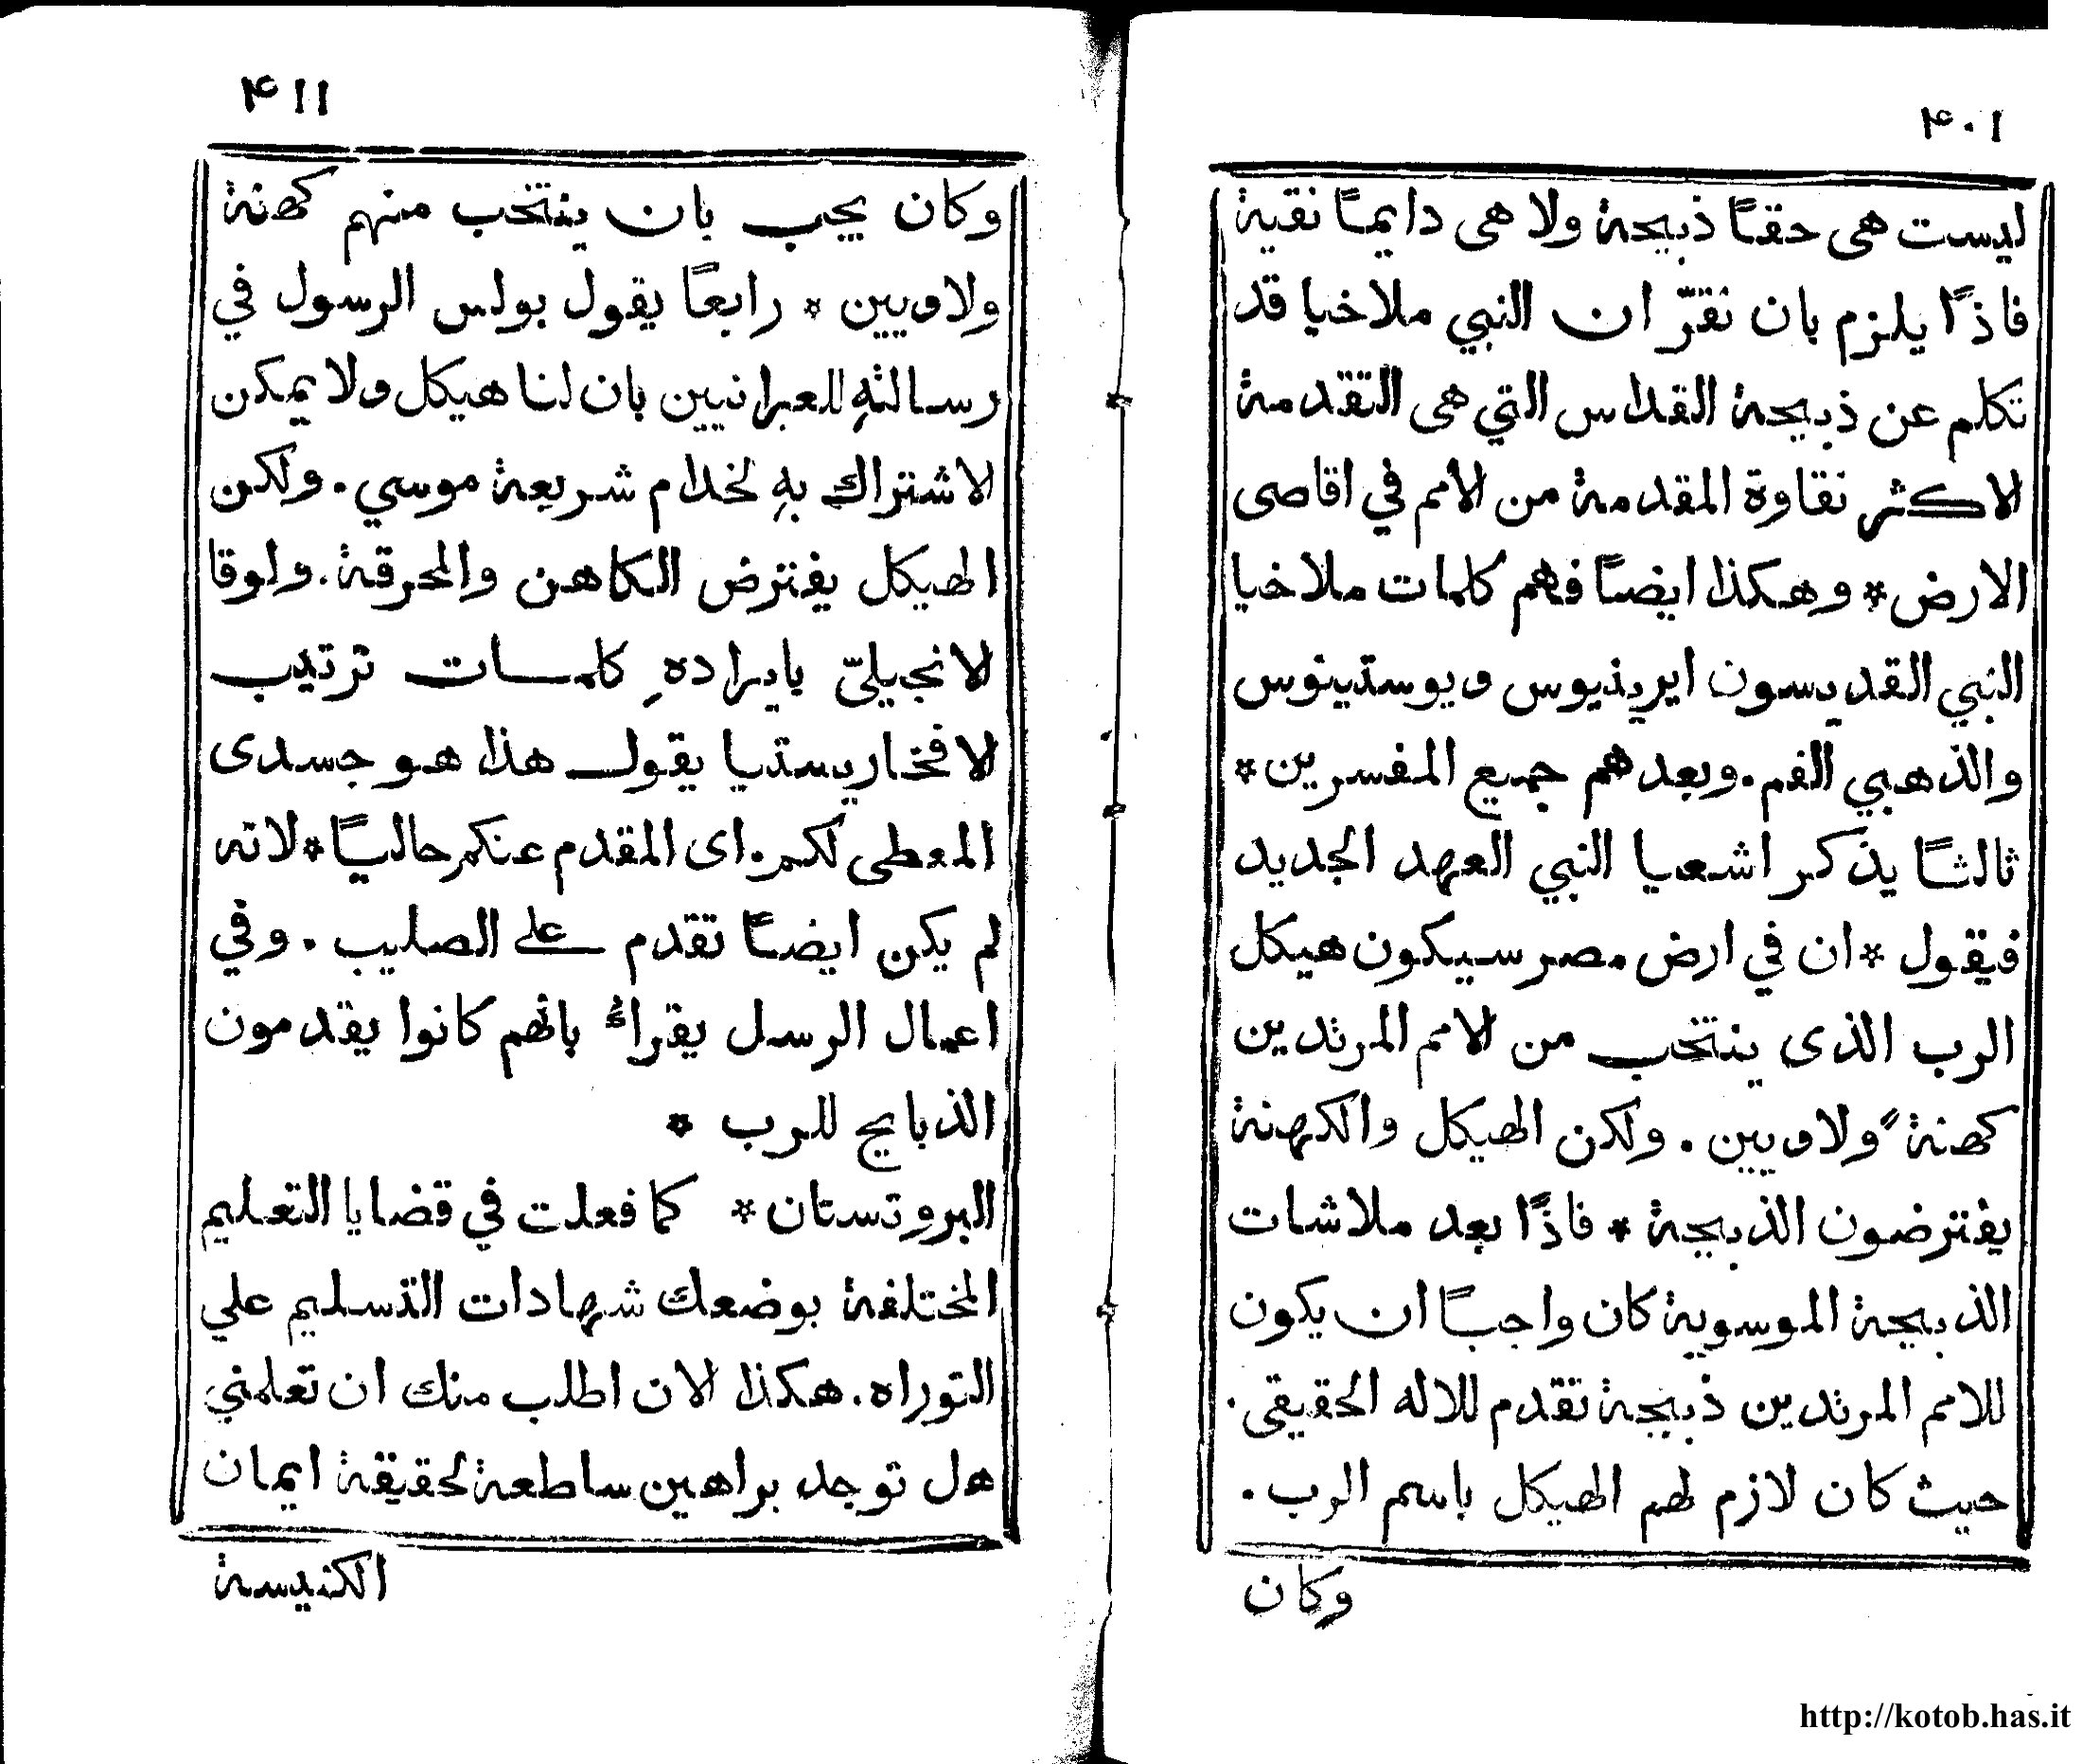 ٤٠١
ليست هى حقاً ذبيحة ولا هى دايماً نقية
فاذًا يلزم بان نقرّ ان النبي ملاخيا قد
تكلم عن ذبيحة القداس التي هى التقدمة
الاكثر نقاوة المقدمة من الامم في اقاصى
الارض * وهكذا ايضاً فهم كلمات ملاخيا
النبي القديسون ايرينيوس ويوستينوس
والذهبي الفم. وبعدهم جميع المفسرين *
ثالثاً يذكر اشعيا النبي العهد الجديد
فيقول * ان في ارض مصر سيكون هيكل
الرب الذى ينتخب من الامم المرتدين
كهنة ولاويين . ولكن الهيكل والكهنة
يفترضون الذبيحة * فاذًا بعد ملاشات
الذبيحة الموسوية كان واجباً ان يكون
للامم المرتدين ذبيحة تقدم للاله الحقيقى.
حيث كان لازم لهم الهيكل باسم الرب .
وكان
٤١١
وكان يجب بان ينتخب منهم كهنة
ولاويين * رابعاً يقول بولس الرسول في
رسالتهِ للعبرانيين بان لنا هيكل ولا يمكن
الاشتراك بهِ لخدام شريعة موسي. ولكن
الهيكل يفترض الكاهن والمحرقة. ولوقا
الانجيليّ بايرادهِ كلمات ترتيب
الافخاريستيا يقول هذا هو جسدى
المعطى لكم. اى المقدم عنكم حالياً * لانه
لم يكن ايضاً تقدم علي الصليب . وفي
اعمال الرسل يقراُ بانهم كانوا يقدمون
الذبايح للرب *
البروتستان * كما فعلت في قضايا التعليم
المختلفة بوضعك شهادات التسليم علي
التوراه. هكذا الان اطلب منك ان تعلمني
هل توجد براهين ساطعة لحقيقة ايمان
الكنيسة
http://kotob.has.it